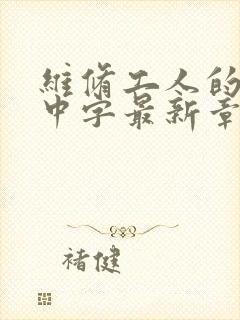 維脩工人的
中字最新章
褚健